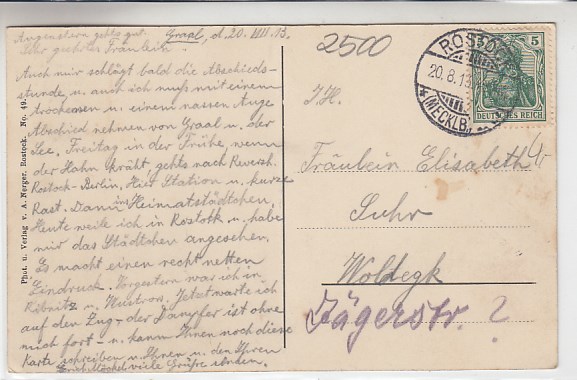 Angenstern gehts gut.
Graal, d 20. VIII. 13.
Sehr geehrtes Fräulein!
Auch mir schlägt bald die Abschieds-
stunde, u. auch ich muß mit einem
trockenen u. einem nassen Auge
Abschied nehmen von Graal u. der
See. Freitag in der Frühe, wenn
der Hahn kräht, gehts nach
Rostock-Berlin. Hier Station u. kurze
Rast. Dann ins Heimatstädtchen.
Heute weile ich in Rostock u. habe
mir das Städtchen angesehen.
Es macht einen recht netten
Eindruck. Vorgestern war ich in
Ribnitz u. Wustrow. Jetzt warte ich
auf den Zug - der Dampfer ist ohne
mich fort - u. kann Ihnen noch diese
Karte schreiben u. Ihnen u. den Ihren
viele Grüße senden.
Phot. u. Verlag v. A. Berger, Rostock. No. 49.
2500
ROSTOCK
20. 8. 13
*(MECKLB.)*
5
DEUTSCHES REICH
I.H.
Fräulein Elisabeth
Suhr
Woldegk
Jägerstr. ?